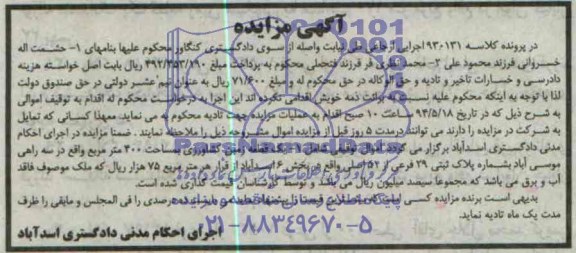 آگهی مزایده
در پرونده کلاسه ۹۳۰۱۳۱ اجرایی ارجاعی طی نیابت واصله از سوی دادگستری کنگاور محکوم علیها بنامهای ۱- حشمت اله
خسروانی فرزند محمود علی ۲- محمد نظری فر فرزند فتحعلی محکوم به پرداخت مبلغ ۴۹۲/۳۵۳/۱۹۰ ریال بابت اصل خواسته هزینه
دادرسی و خسارات تاخیر و تادیه و حق الوکاله در حق محکوم له و مبلغ ۷۱/۶۰۰ ریال به عنوان نیم عشر دولتی در حق صندوق دولت
لذا با توجه به اینکه محکوم علیه نسبت به برائت ذمه خویش اقدامی نکرده اند این اجرا به درخواست محکوم له اقدام به توقیف اموالی
به شرح ذیل که در تاریخ ۹۴/۵/۱۸ ساعت ۱۰ صبح اقدام به عملیات مزایده جهت تادیه محکوم به می نماید. لهذا کسانی که تمایل
به شرکت در مزایده را دارند می توانند در مدت ۵ روز قبل از مزایده اموال مشروحه ذیل را ملاحظه نمایند . ضمنا مزایده در اجرای احکام
مدنی دادگستری اسدآباد برگزار می گردد اموال توقیفی شامل قطعه زمین کشاورزی به مساحت ۴۰۰ متر مربع واقع در سه راهی
موسی آباد بشماره پلاک ثبتی ۲۹ فرعی از ۵۲ اصلی واقع در بخش ۶ اسدآباد از قرار هر متر مربع ۷۵ هزار ریال که ملک موصوف فاقد
آب و برق می باشد که مجموعا سیصد میلیون ریال می باشد و توسط کارشناسان قیمت گذاری شده است.
بدیهی است برنده مزایده کسی است که بالاترین قیمت را پیشنهاد نماید و باید ده درصدی را فی المجلس و مابقی را ظرف
مدت یک ماه تادیه نماید.
اجرای احکام مدنی دادگستری اسدآباد
۰۲۱-۸۸۳۴۹۶۷۰-۵